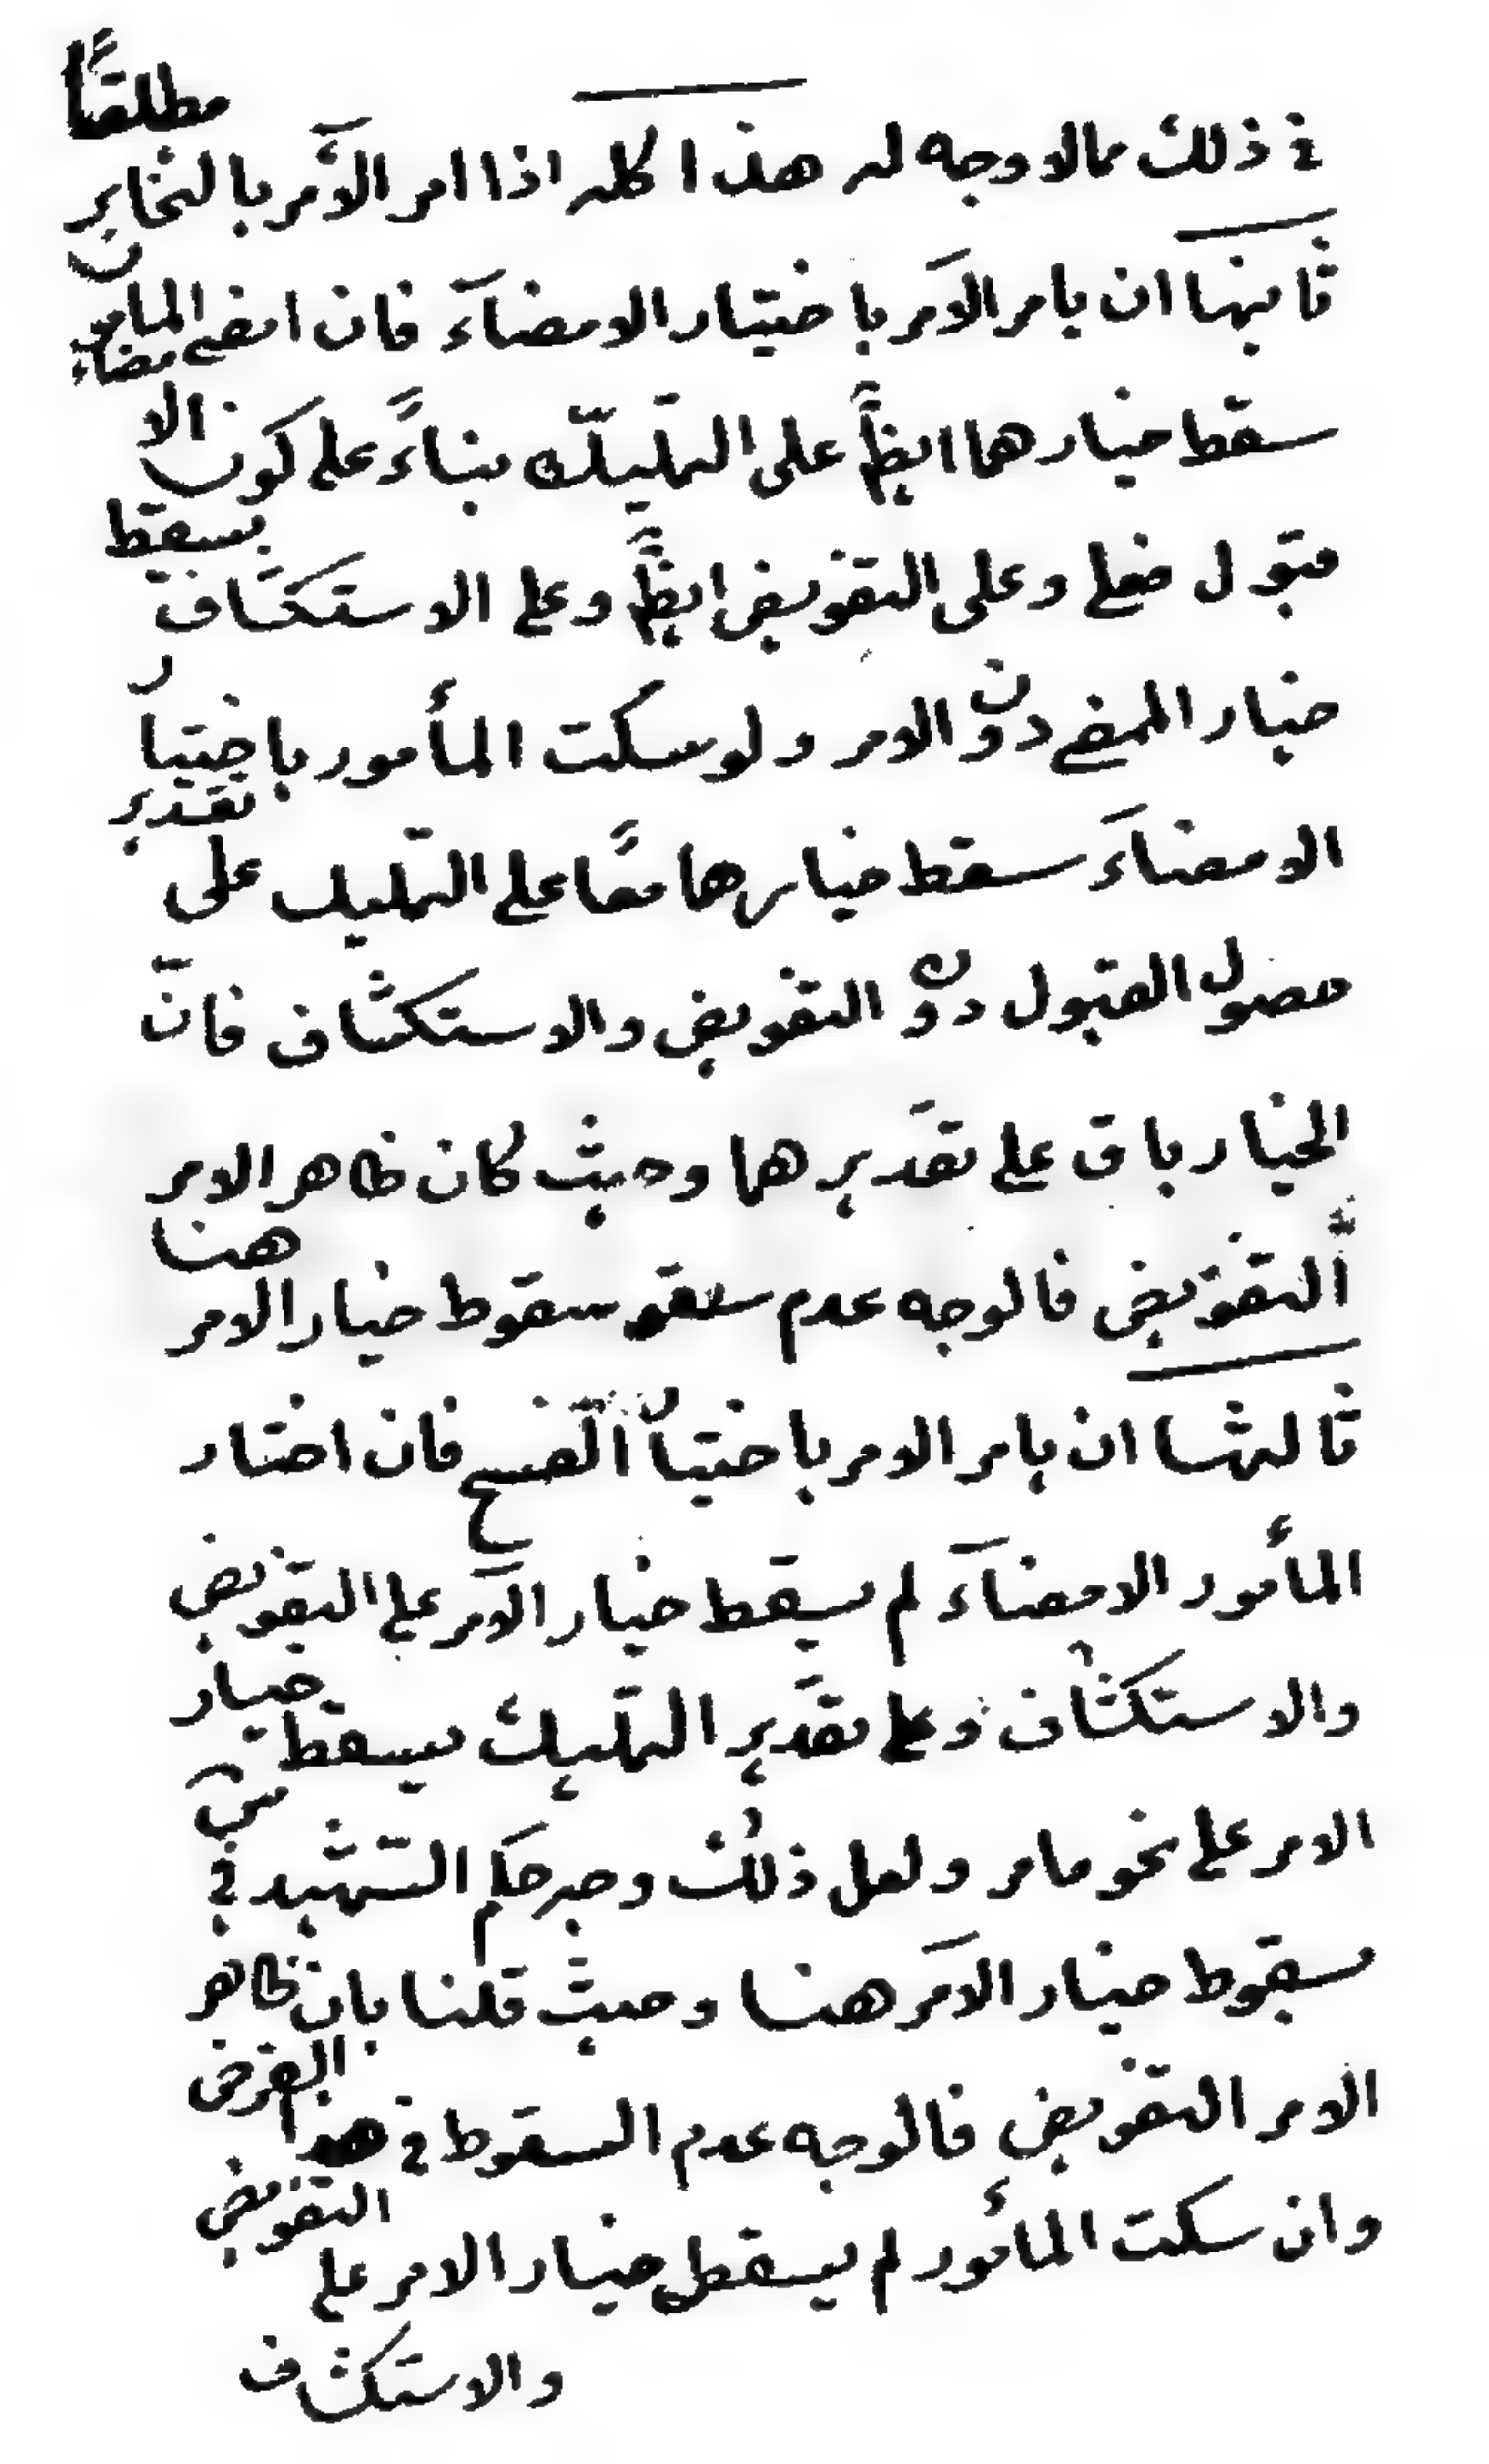 في ذلك مما لا وجه له هذا كله اذا امر الآمر بالتخاير مطلقًا
ثانيها ان يامر الآمر باختيار الامضآء فان امضى المامور
سقط خيارهما ايظًا على التمليك بناءً على كون الامضاء
قبول فعلي وعلى التفويض ايظًا وعلى الاستكشاف يسقط
خيار الممضي دون الامر ولو سكت المأمور باختيار
الامضآء سقط خيارهما معًا على التمليك على تقدير
حصول القبول دون التفويض والاستكشاف فانّ
الخيار باق على تقديرهما وحيث كان ظاهر الامر
التفويض فالوجه عدم سقو سقوط خيار الامر هنا
ثالثها ان يامر الامر باختيار الفسخ فان اختار
المأمور الامضآء لم يسقط خيار الآمر على التفويض
والاستكشاف وعلى تقدير التمليك يسقط خيار
الامر على نحو ما مر ولعل ذلك وجه حكم الشهيد في سّ
سقوط خيار الآمر هنا وحيث قلنا بان ظاهر
الامر التفويض فالوجه عدم السقوط في هذا الفرض
وان سكت المأمور لم يسقط خيار الامر على التفويض
والاستكشاف